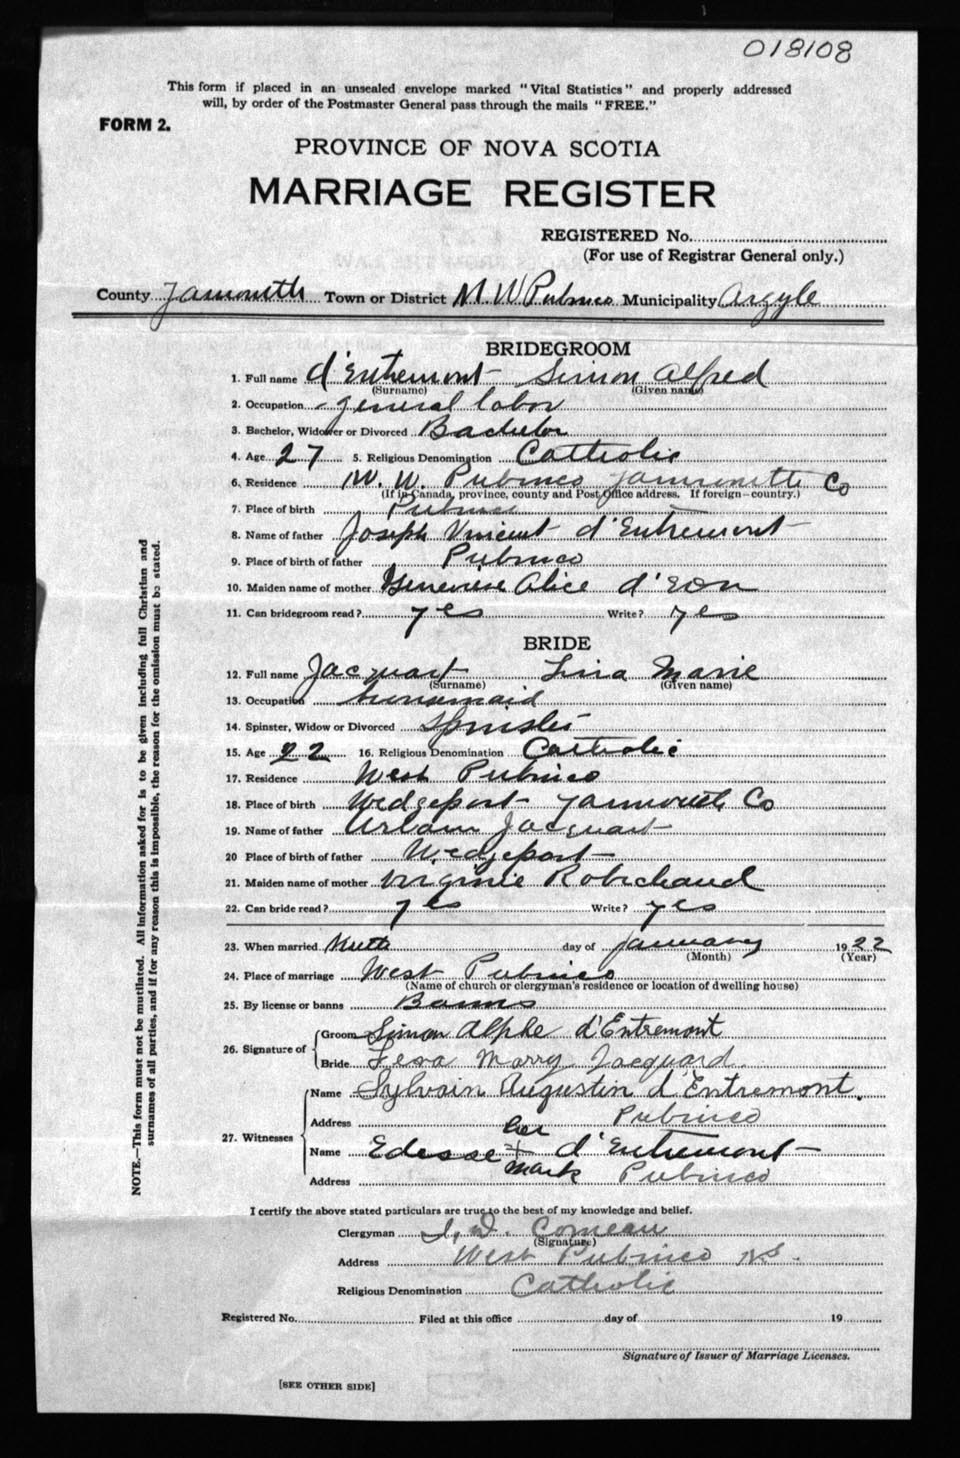 018108
This form if placed in an unsealed envelope marked "Vital Statistics" and properly addressed
will, by order of the Postmaster General pass through the mails "FREE."
FORM 2.
PROVINCE OF NOVA SCOTIA
MARRIAGE REGISTER
REGISTERED No.
(For use of Registrar General only.)
County Yarmouth Town or District M. W. Pubnico Municipality Argyle
BRIDEGROOM
1. Full name d'Entremont Simon Alfred
(Surname) (Given name)
2. Occupation general labor
3. Bachelor, Widower or Divorced Bachelor
4. Age 27 5. Religious Denomination Catholic
6. Residence M. W. Pubnico Yarmouth Co
(If in Canada, province, county and Post Office address. If foreign—country.)
7. Place of birth Pubnico
8. Name of father Joseph Vincent d'Entremont
9. Place of birth of father Pubnico
10. Maiden name of mother Genevieve Alice d'Eon
11. Can bridegroom read? yes Write? yes
BRIDE
12. Full name Jacquart Lina Marie
(Surname) (Given name)
13. Occupation housemaid
14. Spinster, Widow or Divorced Spinster
15. Age 22 16. Religious Denomination Catholic
17. Residence West Pubnico
18. Place of birth Wedgeport Yarmouth Co
19. Name of father Urbain Jacquart
20 Place of birth of father Wedgeport
21. Maiden name of mother Virginie Robichaud
22. Can bride read? yes Write? yes
23. When married day of January 1922
(Month) (Year)
24. Place of marriage West Pubnico
(Name of church or clergyman's residence or location of dwelling house)
25. By license or banns Banns
26. Signature of
Groom Simon Alphe d'Entremont
Bride Marry Jacquard
27. Witnesses
Name Sylvain Augustin d'Entremont.
Address Pubnico
her
Name Edesse + d'Entremont
mark
Address Pubnico
I certify the above stated particulars are true to the best of my knowledge and belief.
Clergyman Comeau
(Signature)
Address West Pubnico N.S.
Religious Denomination Catholic
Registered No. Filed at this office day of 19
Signature of Issuer of Marriage Licenses.
[SEE OTHER SIDE]
NOTE.—This form must not be mutilated. All information asked for is to be given including full Christian and
surnames of all parties, and if for any reason this is impossible, the reason for the omission must be stated.